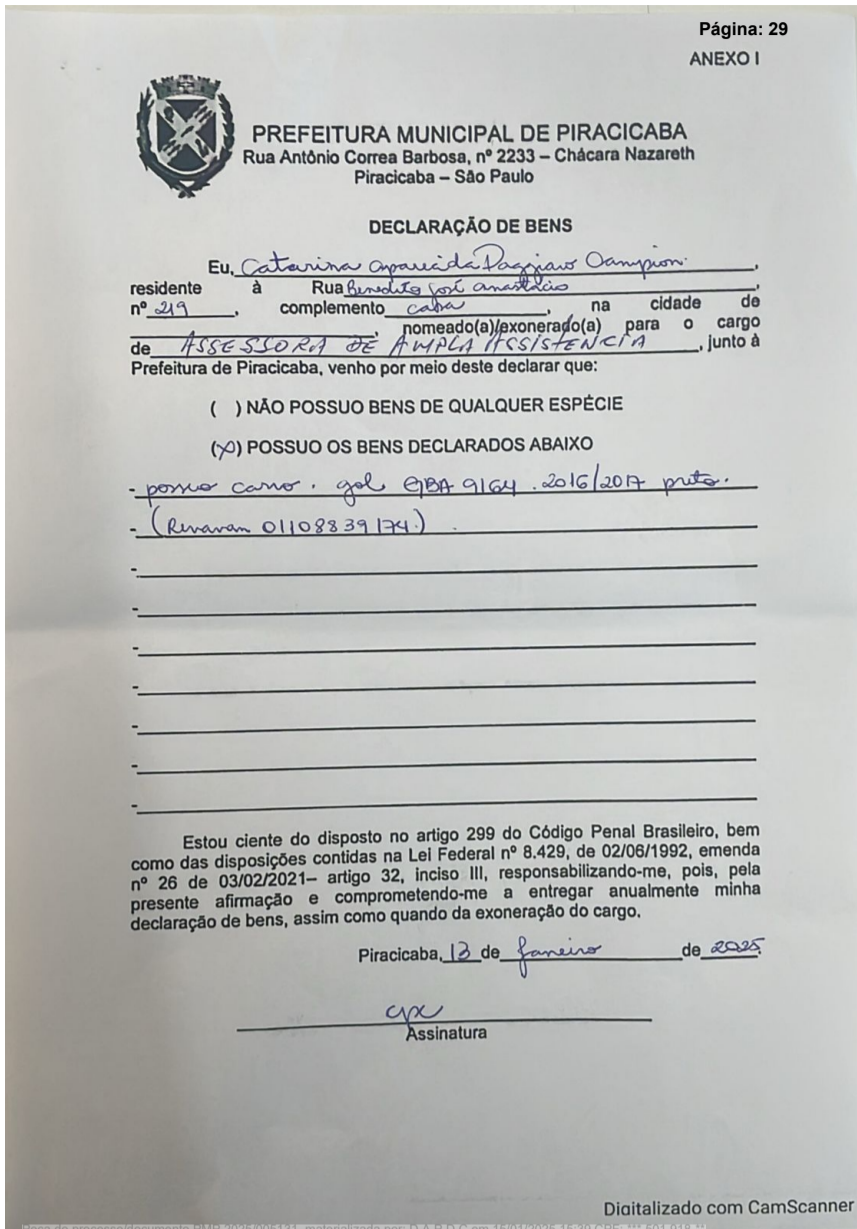 Página: 29
ANEXO I
PREFEITURA MUNICIPAL DE PIRACICABA
Rua Antônio Correa Barbosa, nº 2233 – Chácara Nazareth
Piracicaba – São Paulo
DECLARAÇÃO DE BENS
Eu, Catarina Aparecida,
residente à Rua Benedito José Anastácio,
nº 219, complemento casa, na cidade de
, nomeado(a)/exonerado(a) para o cargo
de ASSESSORA DE AMPLA ASSISTENCIA, junto à
Prefeitura de Piracicaba, venho por meio deste declarar que:
( ) NÃO POSSUO BENS DE QUALQUER ESPÉCIE
(X) POSSUO OS BENS DECLARADOS ABAIXO
- possuo carro. gol 9164. 2016/2017 preto.
- (Renavam 01108839174).
-
-
-
-
-
-
-
Estou ciente do disposto no artigo 299 do Código Penal Brasileiro, bem
como das disposições contidas na Lei Federal nº 8.429, de 02/06/1992, emenda
nº 26 de 03/02/2021– artigo 32, inciso III, responsabilizando-me, pois, pela
presente afirmação e comprometendo-me a entregar anualmente minha
declaração de bens, assim como quando da exoneração do cargo.
Piracicaba, 13 de Janeiro de 2025.
Assinatura
Digitalizado com CamScanner